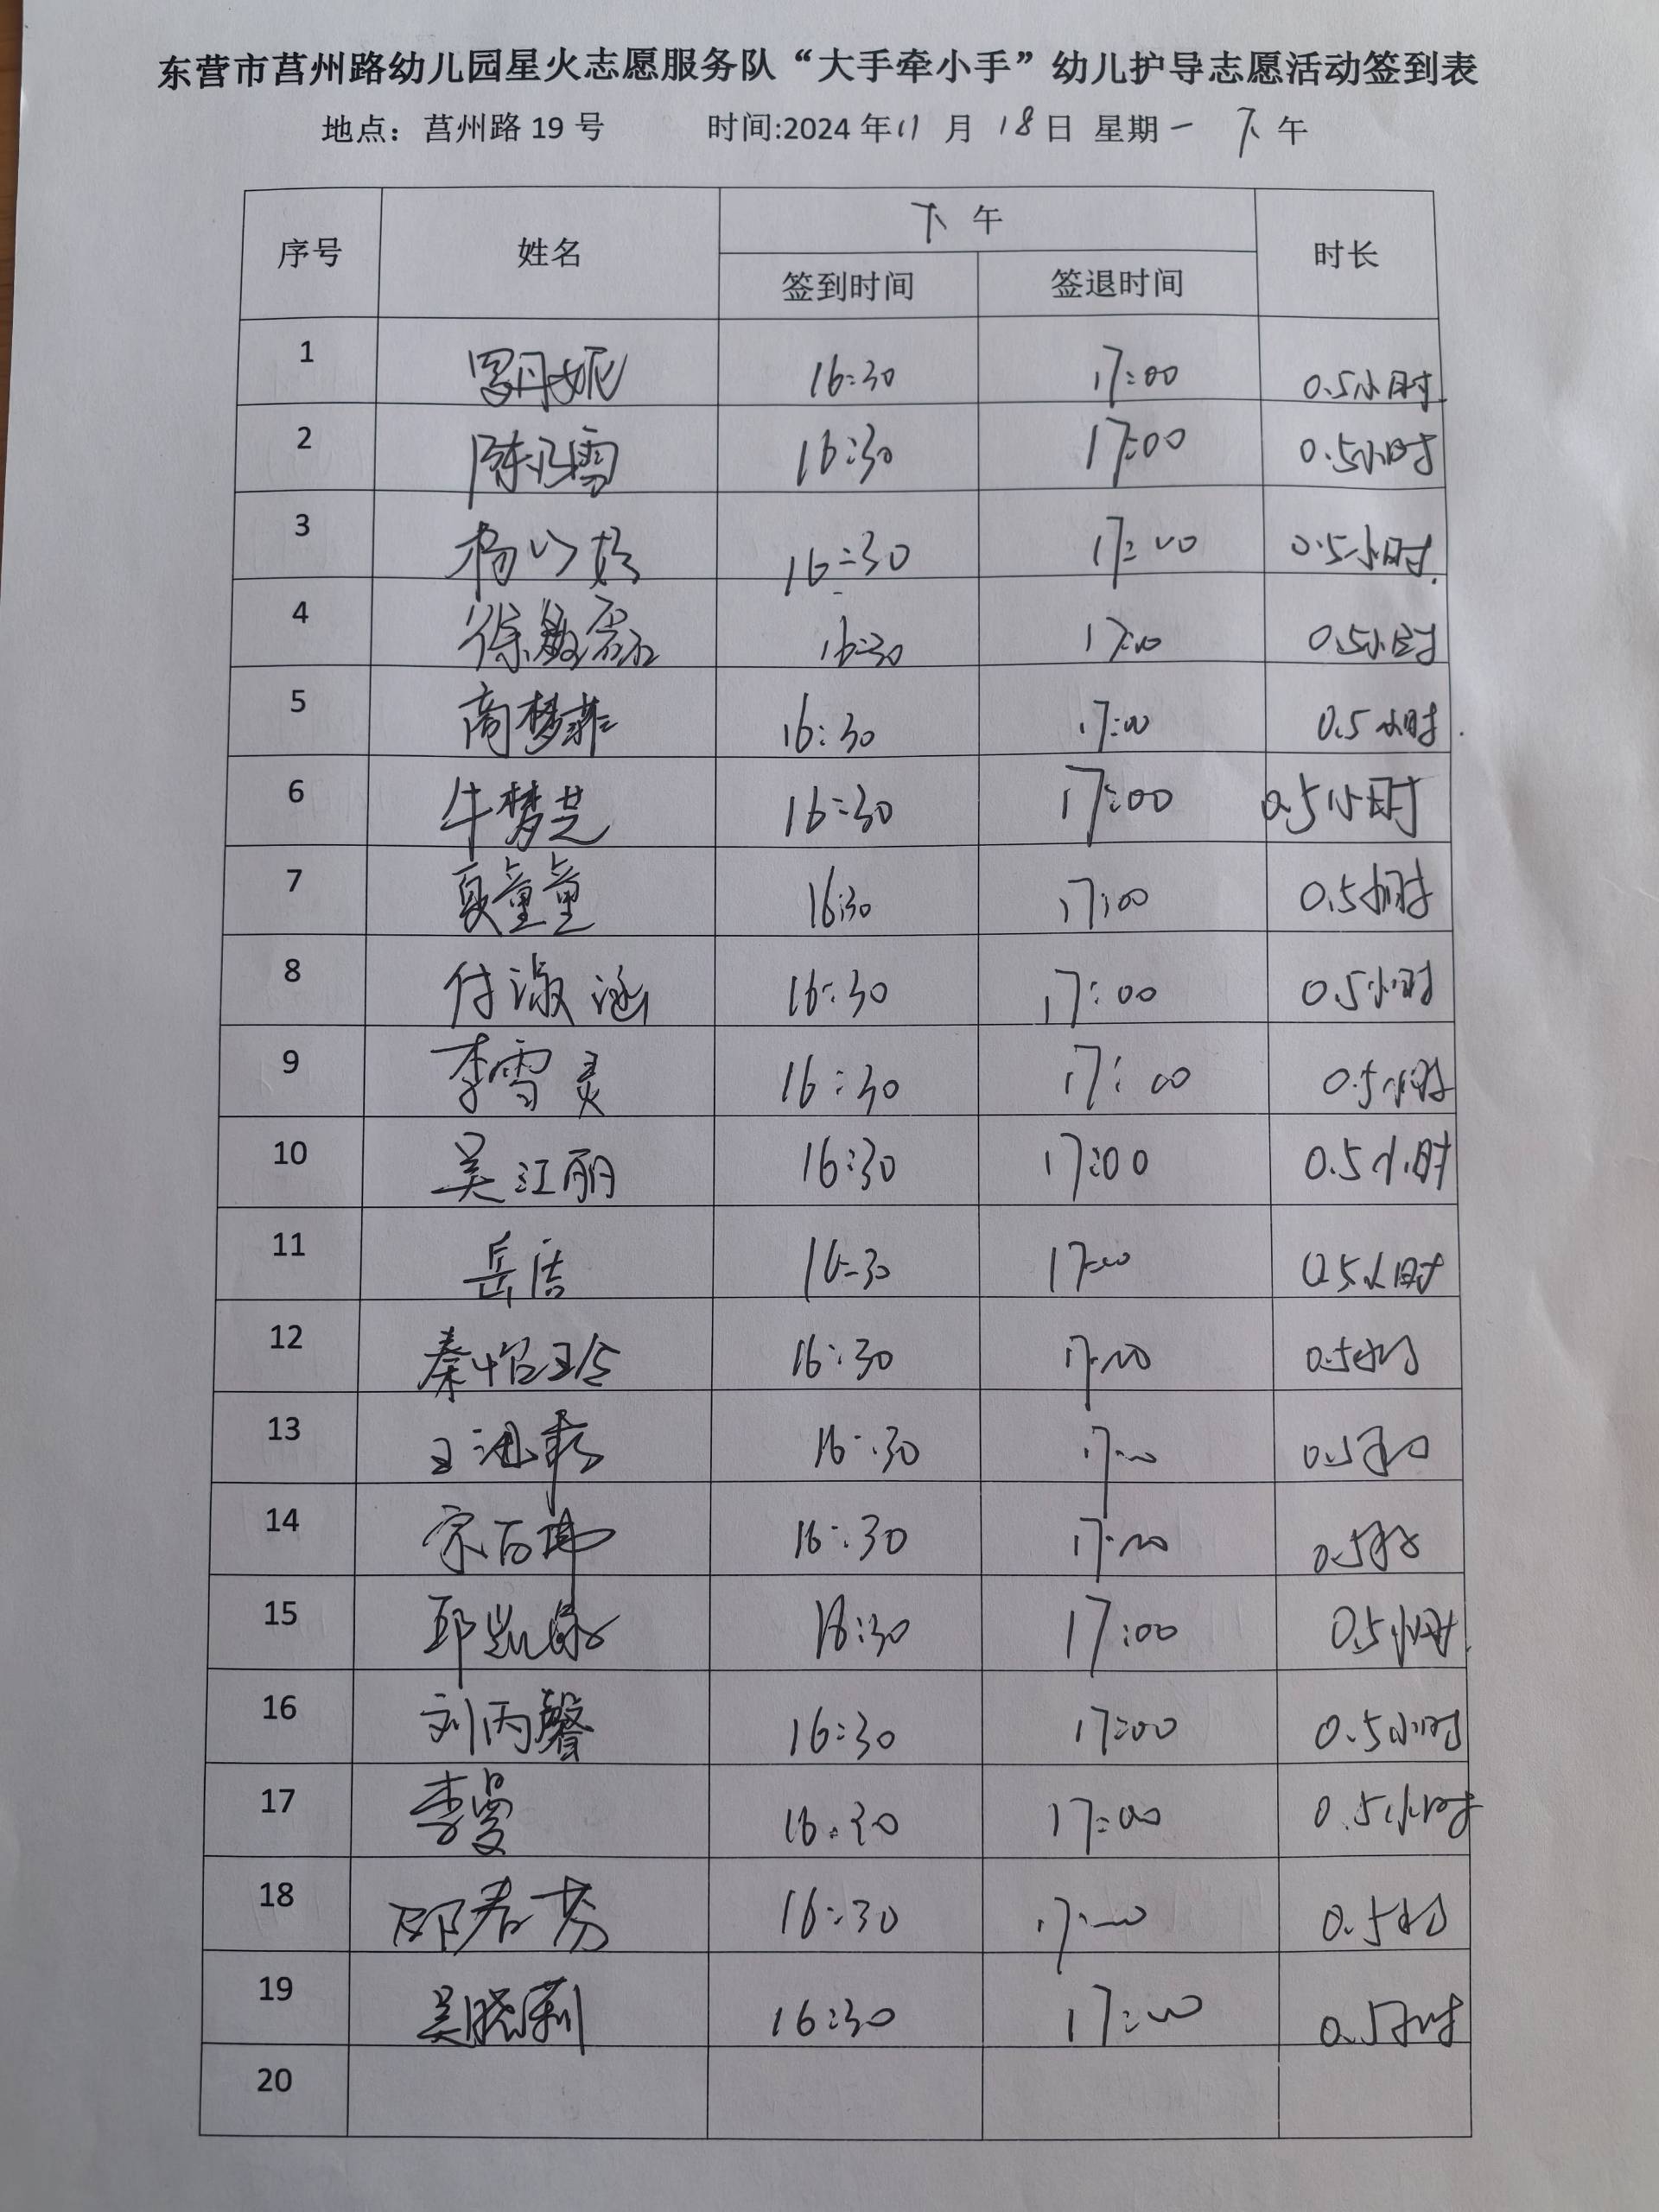 东营市莒州路幼儿园星火志愿服务队“大手牵小手”幼儿护导志愿活动签到表
地点：莒州路 19 号 时间:2024 年 11 月 18 日 星期一 下午
序号 姓名 下午 时长
签到时间 签退时间
1 罗丹妮 16:30 17:00 0.5小时
2 陈凡雪 16:30 17:00 0.5小时
3 杨 16:30 17:00 0.5小时
4 徐敏磊 16:30 17:00 0.5小时
5 商梦菲 16:30 17:00 0.5小时
6 牛梦芝 16:30 17:00 0.5小时
7 夏童童 16:30 17:00 0.5小时
8 付淑涵 16:30 17:00 0.5小时
9 李雪灵 16:30 17:00 0.5小时
10 吴江丽 16:30 17:00 0.5小时
11 岳洁 16:30 17:00 0.5小时
12 秦怡珍 16:30 17:00 0.5小时
13 王 16:30 17:00 0.5小时
14 宗 16:30 17:00 0.5小时
15 邱凯 16:30 17:00 0.5小时
16 刘丙馨 16:30 17:00 0.5小时
17 李曼 16:30 17:00 0.5小时
18 邵春芬 16:30 17:00 0.5小时
19 吴晓莉 16:30 17:00 0.5小时
20